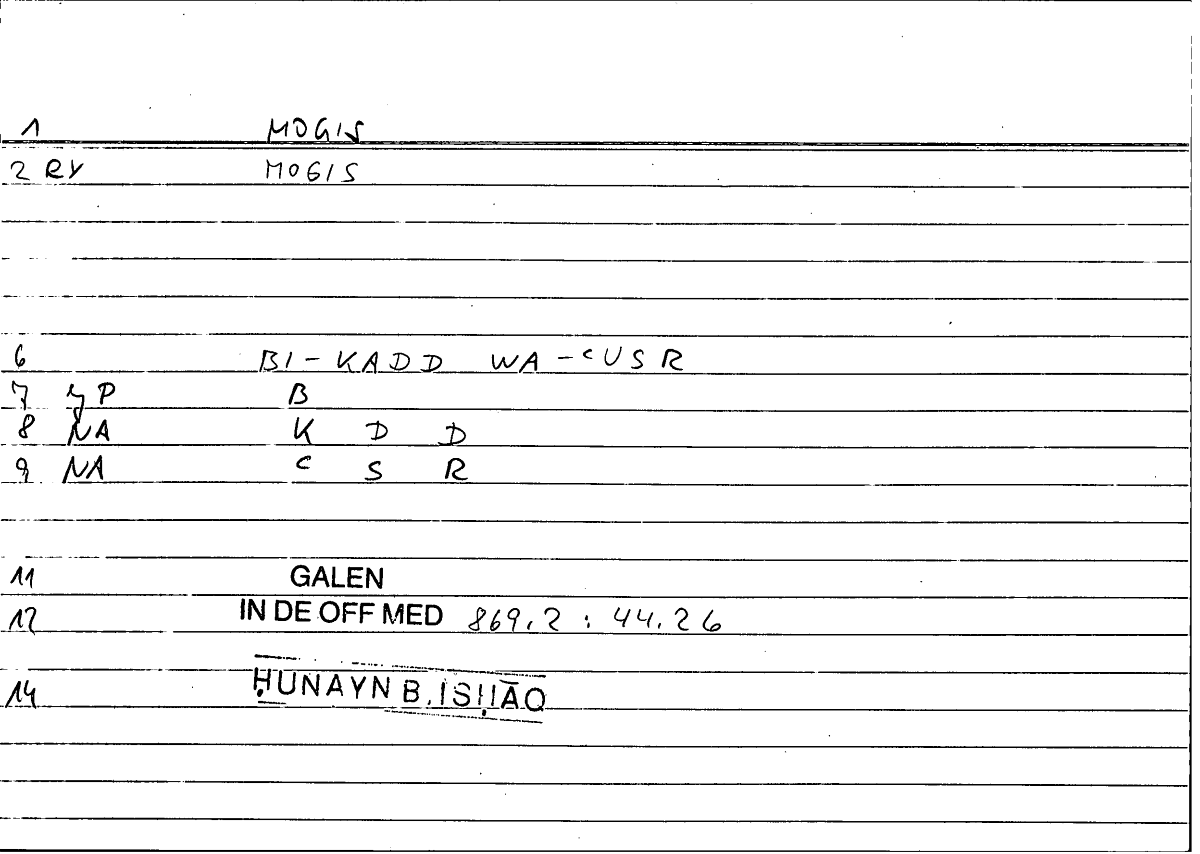 1 MOGIS
2 RY MOGIS
6 BI-KADD WA-ᶜUSR
7 ḫP B
8 NA K D D
9 NA ᶜ S R
11 GALEN
12 IN DE OFF MED 869.2 : 44.26
14 ḤUNAYN B. ISḤĀQ